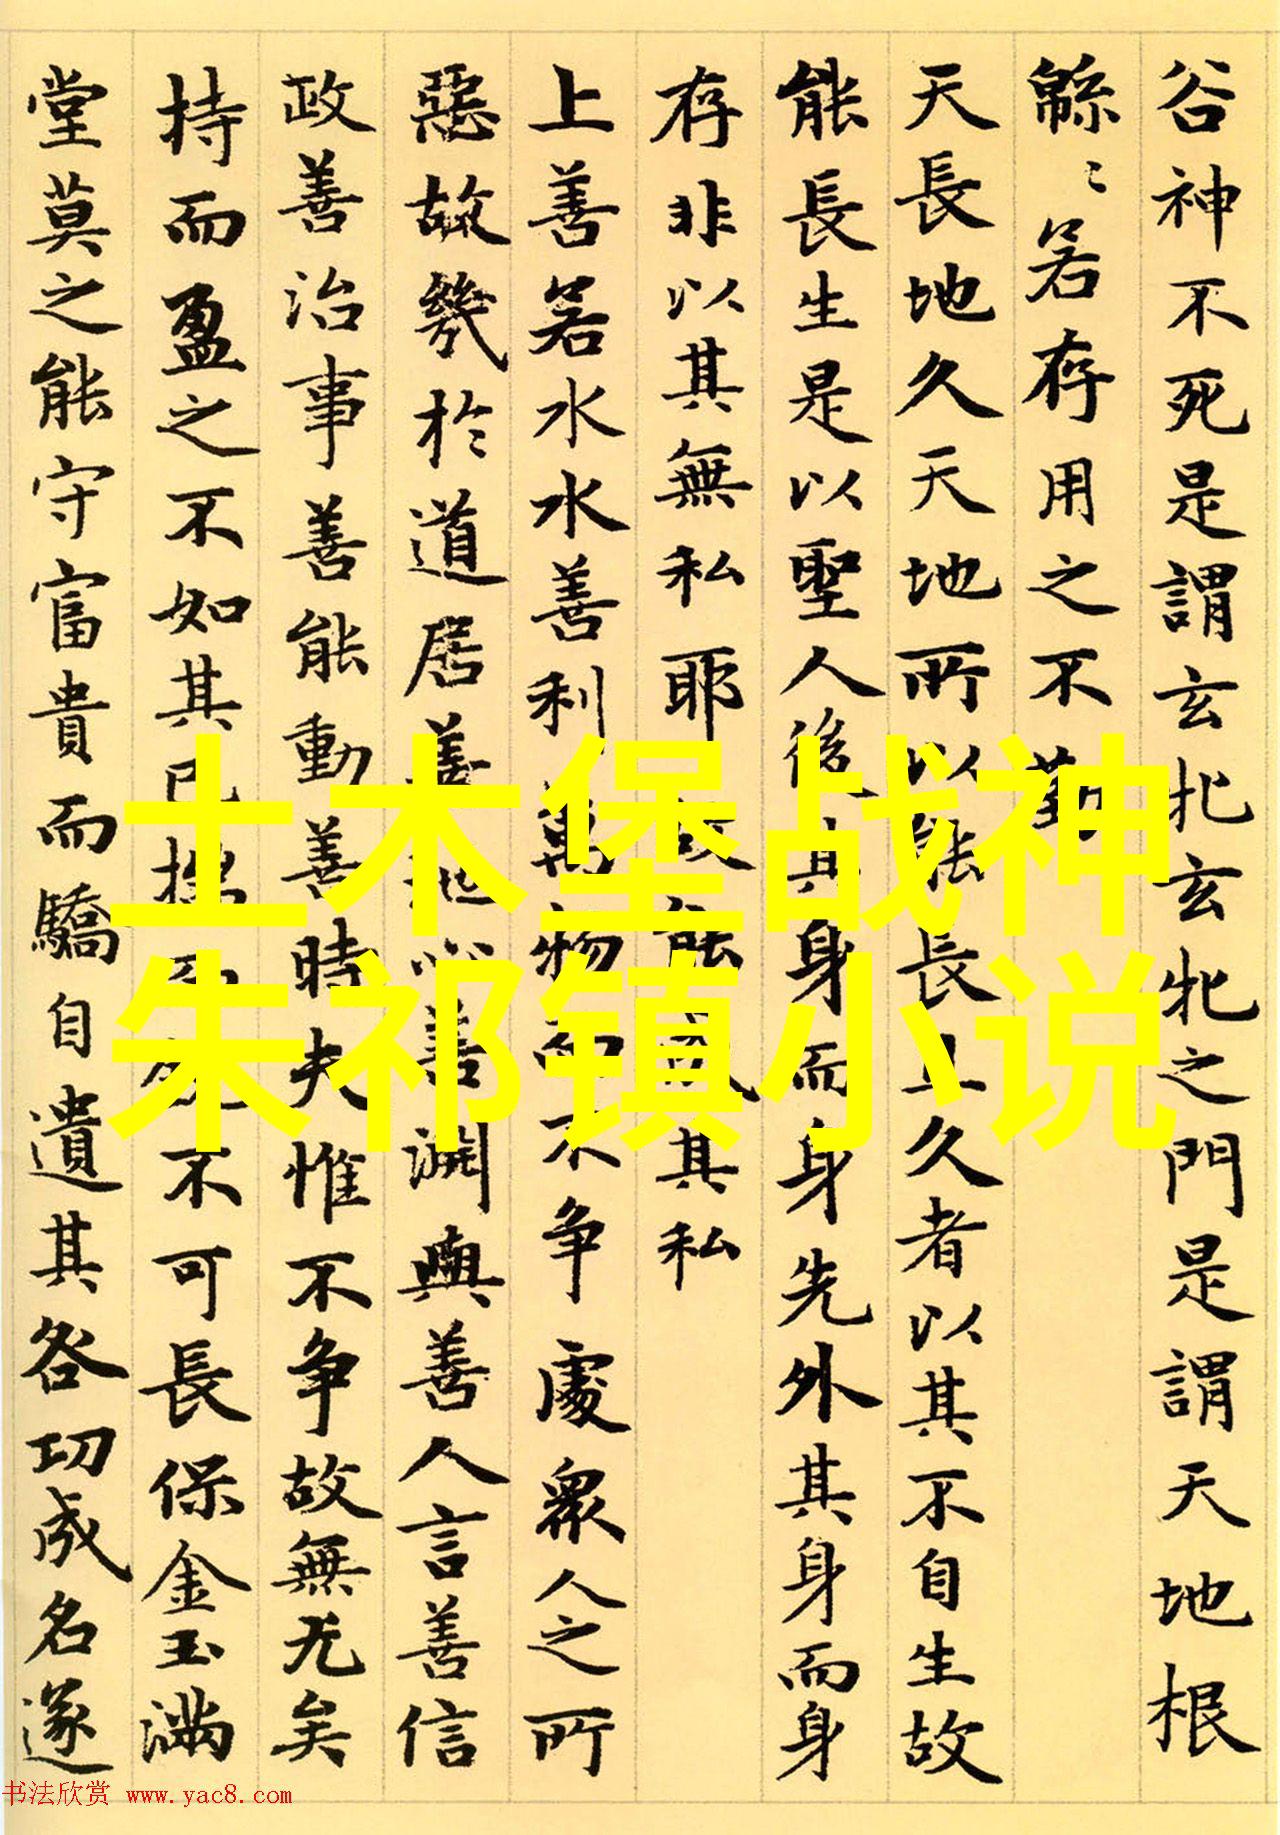 谷神不死是謂玄牝玄牝之門是謂天地根
緜〻若存用之不勤
天長地久天地所以能長且久者以其不自生故
能長生是以聖人後其身而身先外其身而身
存非以其無私耶故能成其私
上善若水水善利萬物而不争處衆人之所
惡故幾於道居善地心善淵與善人言善信
政善治事善能動善時夫惟不争故無尤矣
持而盈之不如其已揣而不可長保金玉滿
堂莫之能守富貴而驕自遺其咎功成名遂
土木堡战神
朱祁镇小说
书法欣赏 www.yac8.com